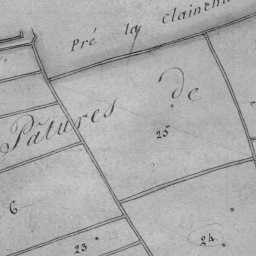 Pré la
Pâtures de
25
6
23
24